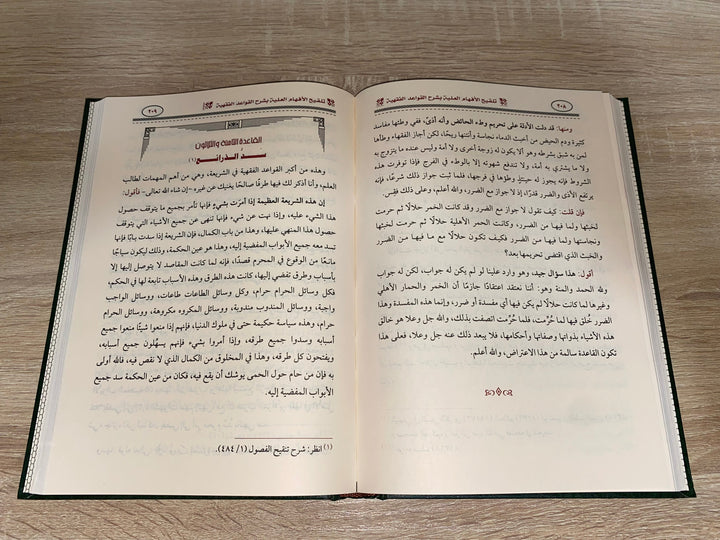 ٢٠٨
تلقيح الأفهام العلية بشرح القواعد الفقهية
ومنها: قد دلت الأدلة على تحريم وطء الحائض وأنه أذىً، ففي وطئها مفاسد
كثيرة ودم الحيض من أخبث الدماء نجاسة وأنتنها ريحًا، لكن أجاز الفقهاء وطأها
لمن به شبق بشرطه وهو ألا يكون له زوجة أخرى ولا أمة وليس عنده ما يتزوج به
ولا ما يشتري به أمة، ولا تندفع شهوته إلا بالوطء في الفرج فإذا توفرت هذه
الشروط فإنه يجوز له حينئذٍ وطؤها في فرجها، فلما ثبت جواز ذلك شرعًا، فإنه
يرتفع الأذى والضرر قدرًا، إذ لا جواز مع الضرر، والله أعلم، وعلى ذلك فقِس.
فإن قلت: كيف تقول لا جواز مع الضرر وقد كانت الخمر حلالًا ثم حرمت
لخبثها ولما فيها من الضرر، وكانت الحمر الأهلية حلالًا ثم حرمت لخبثها
ونجاستها ولما فيها من الضرر فكيف تكون حلالًا مع ما فيها من الضرر
والخبث الذي اقتضى تحريمها بعد؟
أقول: هذا سؤال جيد، وهو وارد علينا لو لم يكن له جواب، لكن له جواب
ولله الحمد والمنة وهو: أننا نعتقد اعتقادًا جازمًا أن الخمر والحمار الأهلي
وغيرها لما كانت حلالًا لم يكن فيها أي مفسدة أو ضرر، وإنما هذه المفسدة وهذا
الضرر خُلق فيها لما حُرِّمت، فلما حُرِّمت اتصفت بذلك، والله جل وعلا هو خالق
هذه الأشياء بذواتها وصفاتها وأحكامها، فلا يبعد ذلك عنه جل وعلا، فعلى هذا
تكون القاعدة سالمة من هذا الاعتراض، والله أعلم.
تلقيح الأفهام العلية بشرح القواعد الفقهية
٢٠٩
القاعدة الثامنة والثلاثون
سد الذرائع (١)
وهذه من أكبر القواعد الفقهية في الشريعة، وهي من أهم المهمات لطالب
العلم، وأنا أذكر لك فيها طرفًا صالحًا يغنيك عن غيره -إن شاء الله تعالى- فأقول:
إن هذه الشريعة العظيمة إذا أمرَت بشيءٍ فإنها تأمر بجميع ما يتوقف حصول
هذا الشيء عليه، وإذا نهت عن شيء فإنها تنهى عن جميع الأشياء التي يتوقف
حصول هذا المنهي عليها، وهذا من باب الكمال، فإن الشريعة إذا سدت بابًا فإنها
تسد معه جميع الأبواب المفضية إليه، وهذا هو عين الحكمة، وذلك ليكون سياجًا
مانعًا من الوقوع في المحرم قصدًا، فإنه لما كانت المقاصد لا يتوصل إليها إلا
بأسباب وطرق تفضي إليها، كانت هذه الطرق وهذه الأسباب تابعة لها في الحكم،
فكل وسائل الحرام حرام، وكل وسائل الطاعات طاعات، ووسائل الواجب
واجبة، ووسائل المندوب مندوبة، ووسائل المكروه مكروهة، ووسائل الحرام
حرام، وهذه سياسة حكيمة حتى في ملوك الدنيا، فإنهم إذا منعوا شيئًا منعوا جميع
أسبابه وسدوا جميع طرقه، وإذا أمروا بشيء فإنهم يسهِّلون جميع أسبابه،
ويفتحون كل طرقه، وهذا في المخلوق من الكمال الذي لا نقص فيه، فالله أولى
به فإن من حام حول الحمى يوشك أن يقع فيه، فكان من عين الحكمة سد جميع
الأبواب المفضية إليه.
(١) انظر: شرح تنقيح الفصول (١/ ٤٨٤).